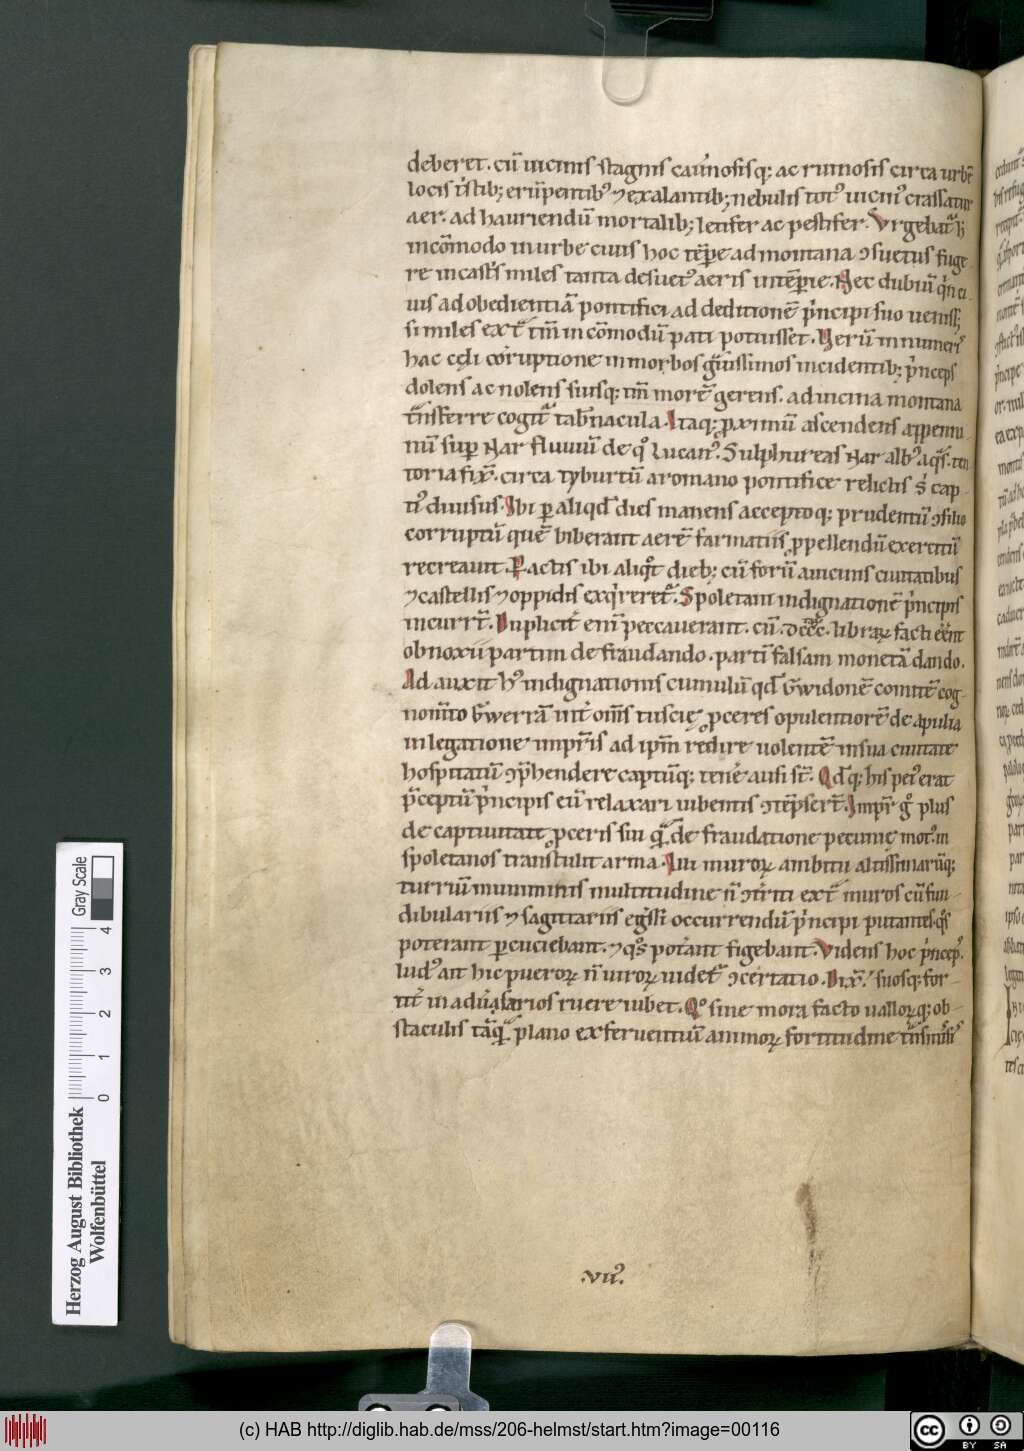 deberet. cū uicinis stagnis cau̾nosisq; ac ruinosis circa urbē
locis t̾stib; erūpentib᷒ ⁊ exalantib; nebulis tot᷒ uicin᷒ crassatur
aer. ad hauriendū mortalib; letifer ac pestifer. Vrgebat᷑ h̾
incōmodo in urbe ciuis hoc tēpore ad montana ɔsuetus fuge-
re in cast̾s miles tanta desuet᷒ aeris intēperie. Nec dubiū q̾n ci-
uis ad obedientiā pontifici ad deditionē p̾ncipi suo uenisset
si miles ext̾ tm̄ incōmodū pati potuisset. Verū innumeris
hac cęli corruptione in morbos g̾uissimos incidentib; p̾nceps
dolens ac nolens suisq; tm̄ morē gerens. ad uicina montana
t̾nsferre cogit᷑ tab̾nacula. Itaq; ꝓximū ascendens appenni-
nū sup̄ Nar fluuiū de q̊ lucan᷒. Sulphureas Nar alb᷒ aqͣs. ten-
toria fix̄. circa tyburtū a romano pontifice relictis s̾ cap-
ti᷒ diuisus. Ibi ꝑ aliqd̄ dies manens acceptoq; prudentū ɔsilio
corruptū quē biberant aerē farmatiis ꝓpellendū exercitū
recreauit. Ꝑactis ibi aliqͦt dieb; cū forū a uicinis ciuitatibus
⁊ castellis ⁊ oppidis exq̾reret᷑. Spoletani indignationē p̾ncipis
incurrt̄. Dupliciť enī peccauerant. cū. dccc. librarꝫ facti eēnt
obnoxii partim defraudando. partī falsam monetā dando.
Ad auxit h᷒ indignationis cumulū qd̄ Gwidonē comitē cog-
nom̄to Gwerrā int̾ om̄s tuscię ꝓceres opulentiorē de apulia
in legatione imp̄ris ad ipm̄ redire uolentē in sua ciuitate
hospitatū ɔp̄hendere captūq; tenē ausi st̄. Qd̄q; his pei᷒ erat
p̄ceptū p̾ncipis eū relaxari iubentis ɔtēpsert̄. Impr̄ gͦ plus
de captiuitate ꝓceris sui qͣ de fraudatione pecunię mot᷒. in
spoletanos transtulit arma. Qui murorꝫ ambitu altissimarūq;
turriū munimınis multitudine n̄ ɔt̾riti ext̾ muros cū fun-
dibulariis ⁊ sagittariis eg̾ssi occurrendū p̾ncipi putantes. qͦs
poterant ꝑcuciebant. ⁊ qͦs pot̾ant figebant. Videns hoc p̾ncep᷒.
lud᷒ ait hic puerorꝫ n̄ uirorꝫ uidet᷑ ɔcertatio. Dix̄. suosq; for-
tit̾ in adu̾sarios ruere iubet. Qͦ sine mora facto uallorꝫq; ob-
staculis tāqͣ plano ex feruentiū animorꝫ fortitudine t̾nsmissi᷒
.VII᷒.
Herzog August Bibliothek
Wolfenbüttel
0 1 2 3 4
Gray Scale
(c) HAB http://diglib.hab.de/mss/206-helmst/start.htm?image=00116
cc BY SA